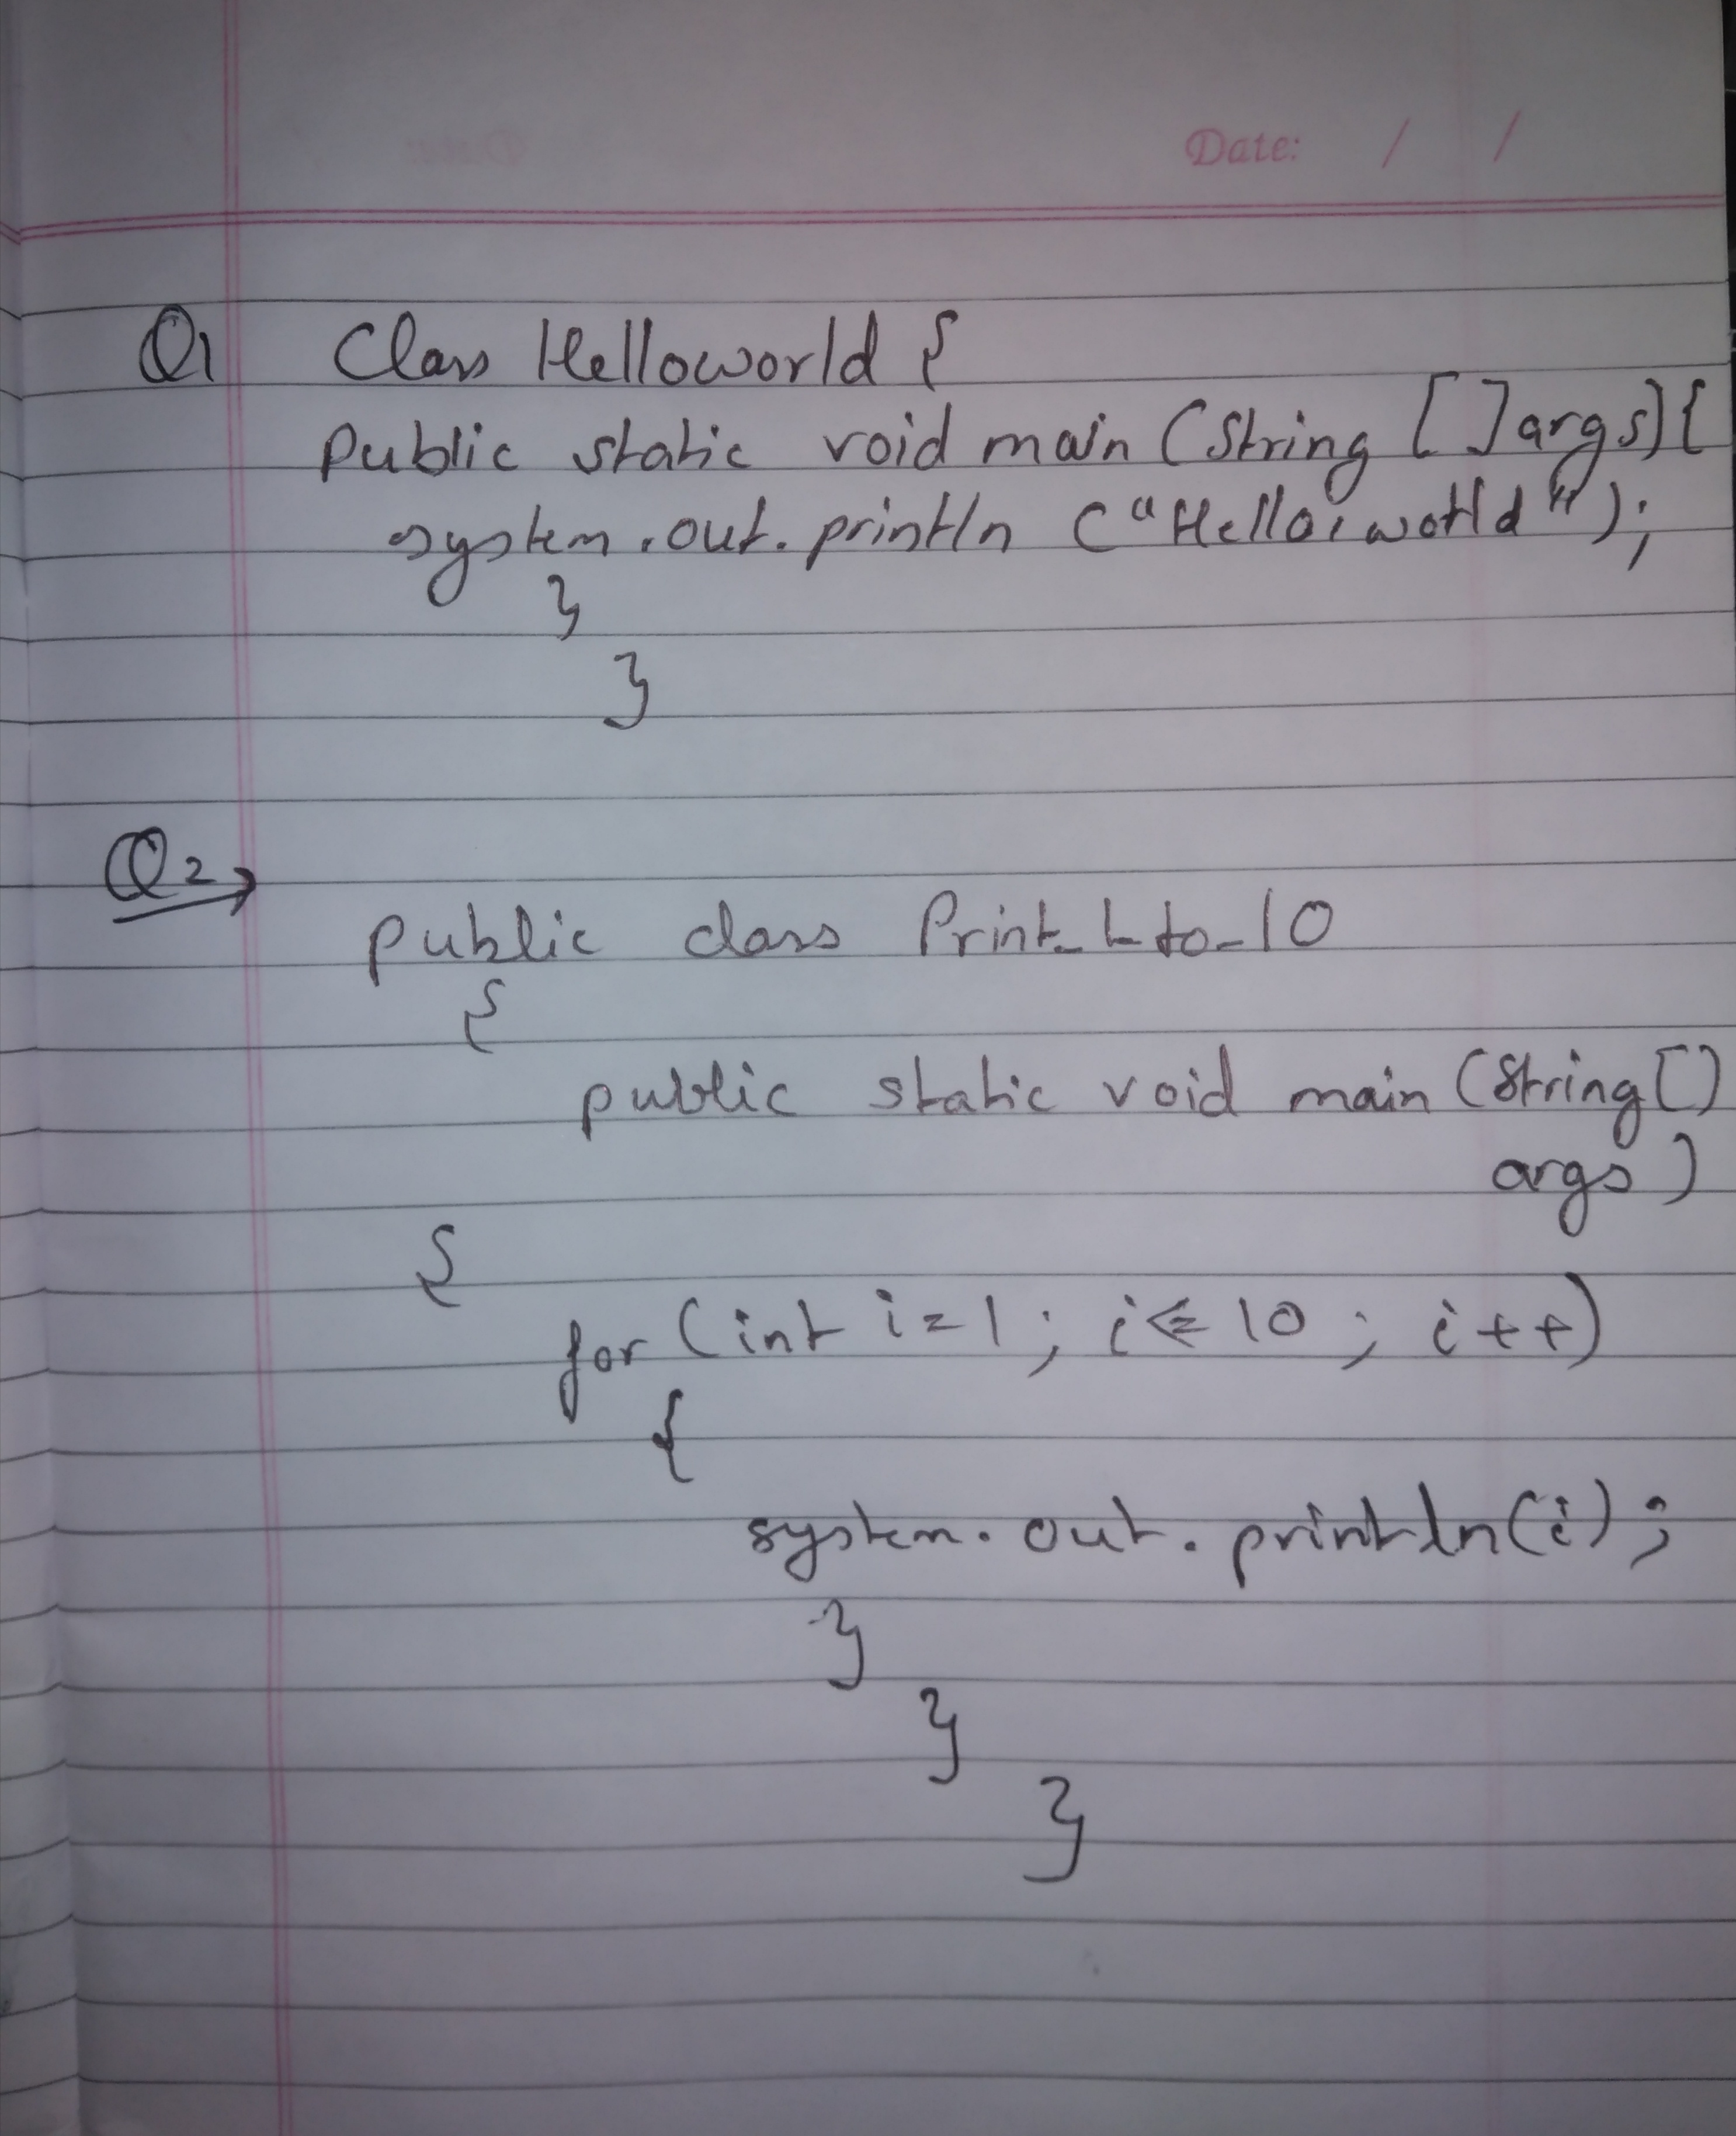 Date: / /
Q1 Class Helloworld {
Public static void main (String [ ] args) {
system.out.println ("Hello, world");
}
}
Q2 →
public class Print_1_to_10
{
public static void main (String []
args)
{
for (int i=1; i<=10; i++)
{
system.out.println(i);
}
}
}